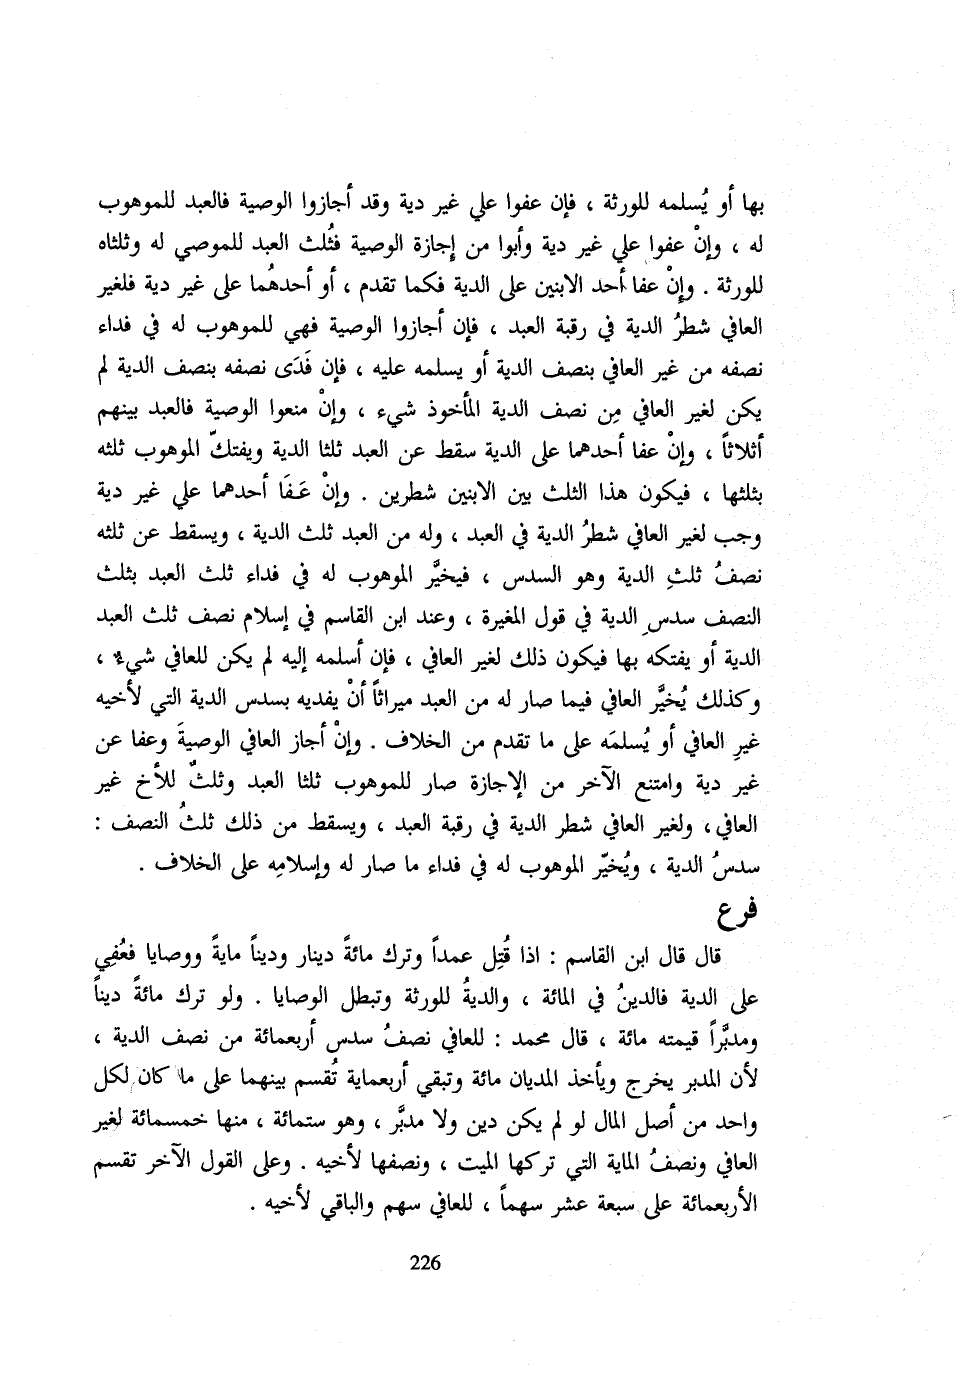 بها أو يُسلمه للورثة ، فإن عفوا علي غير دية وقد أجازوا الوصية فالعبد للموهوب
له ، وإنْ عفوا علي غير دية وأبوا من إجازة الوصية فثُلث العبد للموصي له وثلثاه
للورثة . وإنْ عفا أحد الابنين على الدية فكما تقدم ، أو أحدهُما على غير دية فلغير
العافي شطرُ الدية في رقبة العبد ، فإن أجازوا الوصية فهي للموهوب له في فداء
نصفه من غير العافي بنصف الدية أو يسلمه عليه ، فإن فَدَى نصفه بنصف الدية لم
يكن لغير العافي مِن نصف الدية المأخوذ شيء ، وإنْ منعوا الوصية فالعبد بينهم
أثلاثاً ، وإنْ عفا أحدهما على الدية سقط عن العبد ثلثا الدية ويفتكّ الموهوب ثلثه
بثلثها ، فيكون هذا الثلث بين الابنين شطرين . وإنْ عَفَا أحدهما علي غير دية
وجب لغير العافي شطرُ الدية في العبد ، وله من العبد ثلث الدية ، ويسقط عن ثلثه
نصفُ ثلثِ الدية وهو السدس ، فيخيَّر الموهوب له في فداء ثلث العبد بثلث
النصف سدسِ الدية في قول المغيرة ، وعند ابن القاسم في إسلام نصف ثلث العبد
الدية أو يفتكه بها فيكون ذلك لغير العافي ، فإن أسلمه إليه لم يكن للعافي شيء ،
وكذلك يُخيَّر العافي فيما صار له من العبد ميراثاً أنْ يفديه بسدس الدية التي لأخيه
غيرِ العافي أو يُسلمَه على ما تقدم من الخلاف . وإنْ أجاز العافي الوصيةَ وعفا عن
غير دية وامتنع الآخر من الإجازة صار للموهوب ثلثا العبد وثلثٌ للأخ غير
العافي، ولغير العافي شطر الدية في رقبة العبد ، ويسقط من ذلك ثلثُ النصف :
سدسُ الدية ، ويُخيّر الموهوب له في فداء ما صار له وإسلامِه على الخلاف .
فرع
قال قال ابن القاسم : اذا قُتِل عمداً وترك مائةً دينار وديناً مايةً ووصايا فعُفِي
على الدية فالدينُ في المائة ، والديةُ للورثة وتبطل الوصايا . ولو ترك مائةً ديناً
ومدبَّراً قيمته مائة ، قال محمد : للعافي نصفُ سدس أربعمائة من نصف الدية ،
لأن المدبر يخرج ويأخذ المديان مائة وتبقي أربعماية تُقسم بينهما على ما كان لكل
واحد من أصل المال لو لم يكن دين ولا مدبَّر ، وهو ستمائة ، منها خمسمائة لغير
العافي ونصفُ الماية التي تركها الميت ، ونصفها لأخيه . وعلى القول الآخر تقسم
الأربعمائة على سبعة عشر سهماً ، للعافي سهم والباقي لأخيه .
226